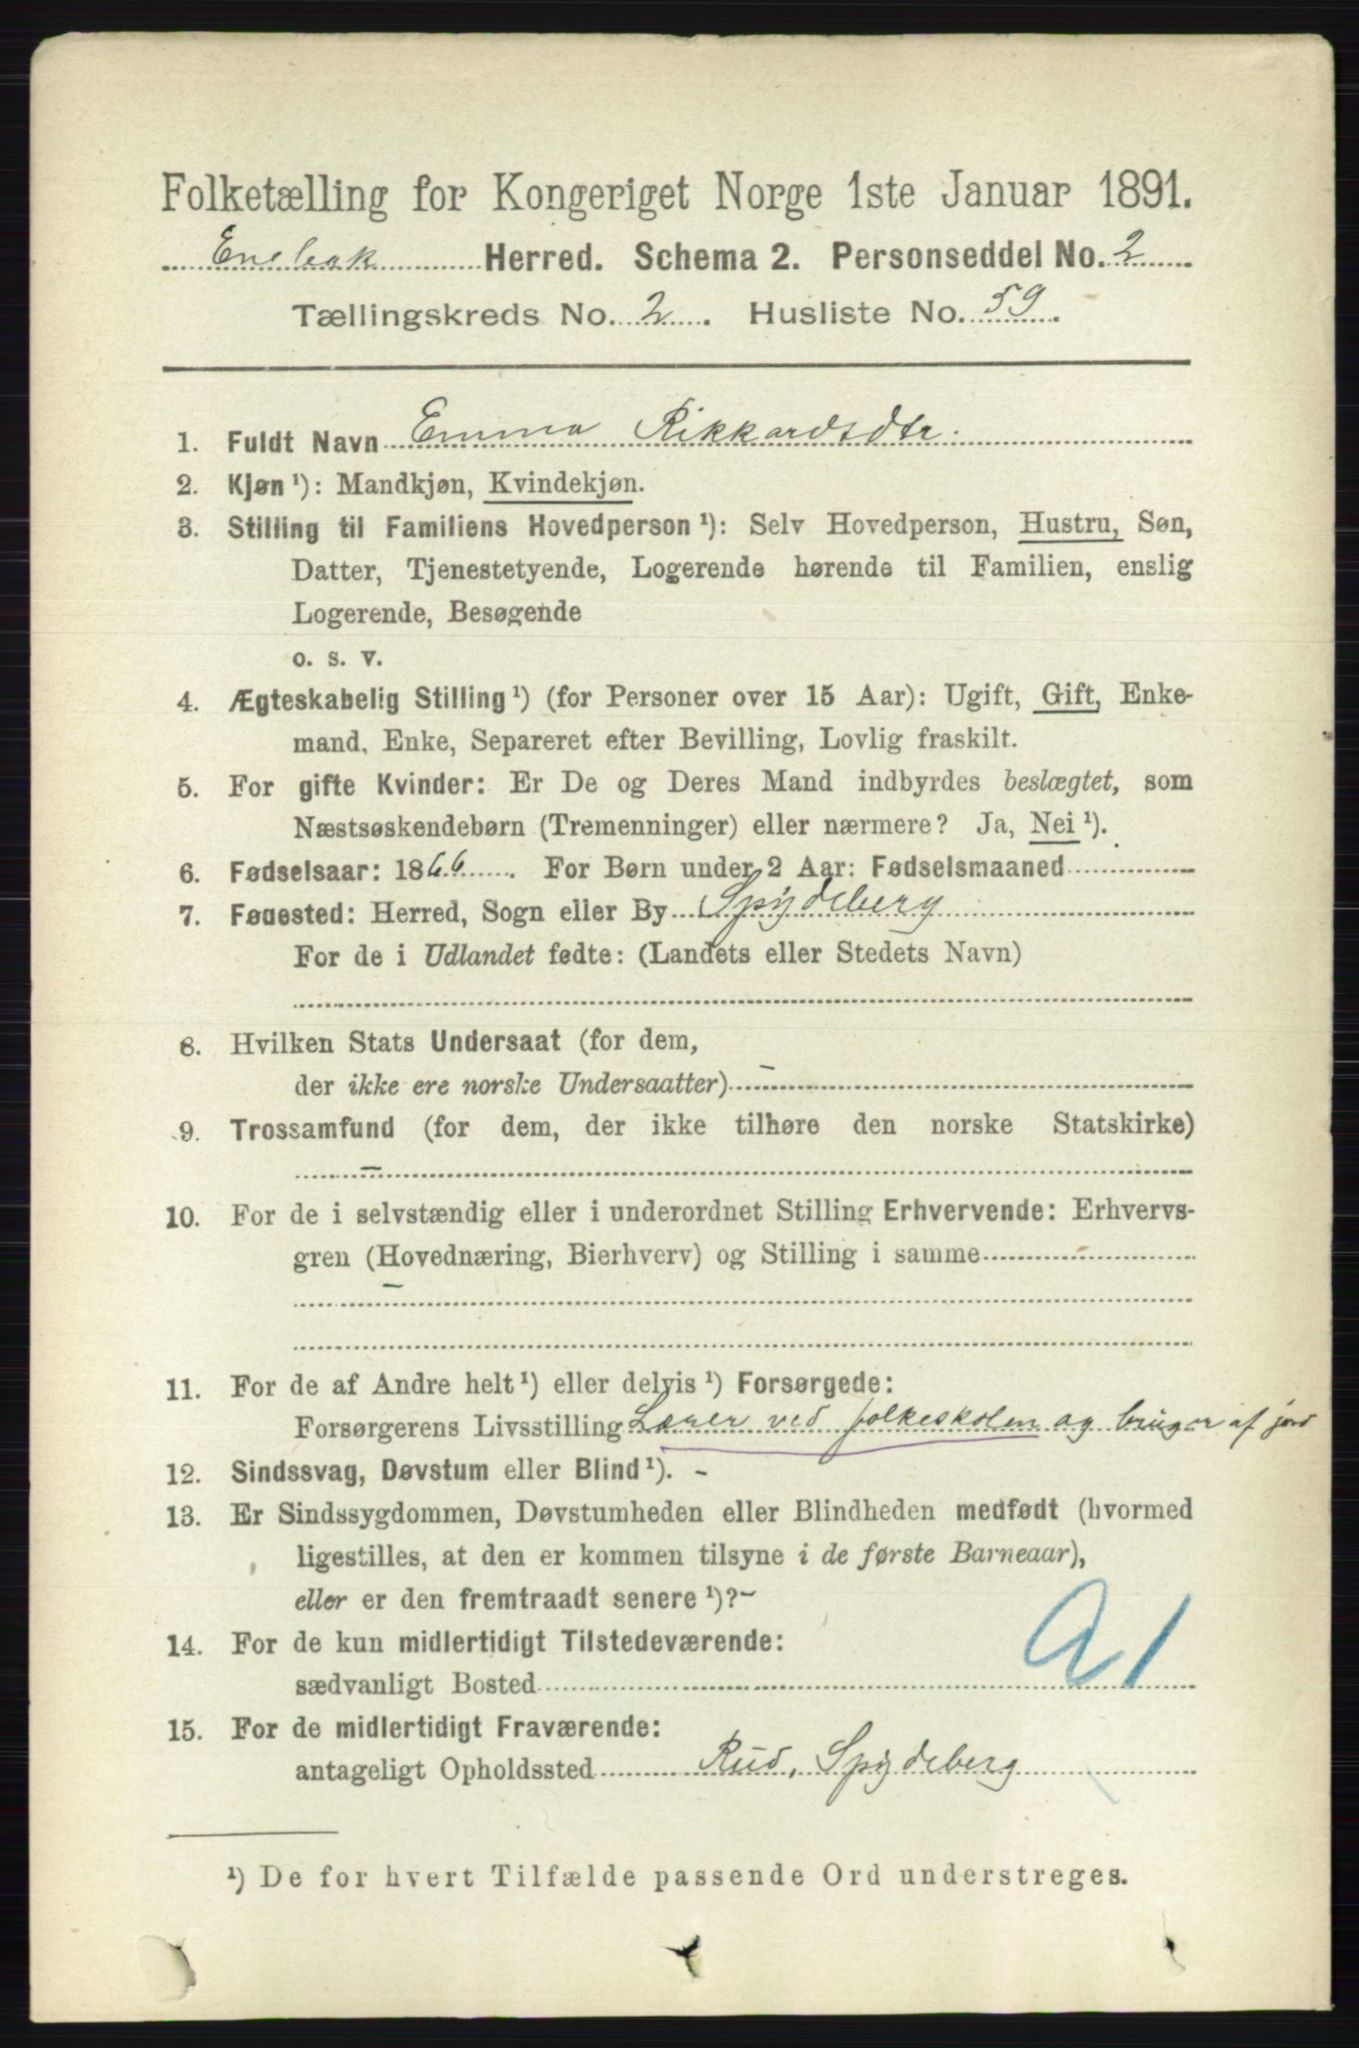 Folketælling for Kongeriget Norge 1ste Januar 1891.
Enebak Herred. Schema 2. Personseddel No. 2
Tællingskreds No. 2. Husliste No. 59.
1. Fuldt Navn Emma Rikkardsdtr.
2. Kjøn ¹): Mandkjøn, Kvindekjøn.
3. Stilling til Familiens Hovedperson ¹): Selv Hovedperson, Hustru, Søn,
Datter, Tjenestetyende, Logerende hørende til Familien, enslig
Logerende, Besøgende
o. s. v.
4. Ægteskabelig Stilling ¹) (for Personer over 15 Aar): Ugift, Gift, Enke-
mand, Enke, Separeret efter Bevilling, Lovlig fraskilt.
5. For gifte Kvinder: Er De og Deres Mand indbyrdes beslægtet, som
Næstsøskendebørn (Tremenninger) eller nærmere? Ja, Nei ¹).
6. Fødselsaar: 1866. For Børn under 2 Aar: Fødselsmaaned
7. Føuested: Herred, Sogn eller By Spydeberg
For de i Udlandet fødte: (Landets eller Stedets Navn)
8. Hvilken Stats Undersaat (for dem,
der ikke ere norske Undersaatter) –
9. Trossamfund (for dem, der ikke tilhøre den norske Statskirke)
–
10. For de i selvstændig eller i underordnet Stilling Erhvervende: Erhvervs-
gren (Hovednæring, Bierhverv) og Stilling i samme
–
11. For de af Andre helt ¹) eller delvis ¹) Forsørgede:
Forsørgerens Livsstilling Lærer ved folkeskolen og bruger af jord
12. Sindssvag, Døvstum eller Blind ¹). –
13. Er Sindssygdommen, Døvstumheden eller Blindheden medfødt (hvormed
ligestilles, at den er kommen tilsyne i de første Barneaar),
eller er den fremtraadt senere ¹)? –
14. For de kun midlertidigt Tilstedeværende:
sædvanligt Bosted
15. For de midlertidigt Fraværende:
antageligt Opholdssted Rud, Spydeberg
¹) De for hvert Tilfælde passende Ord understreges.